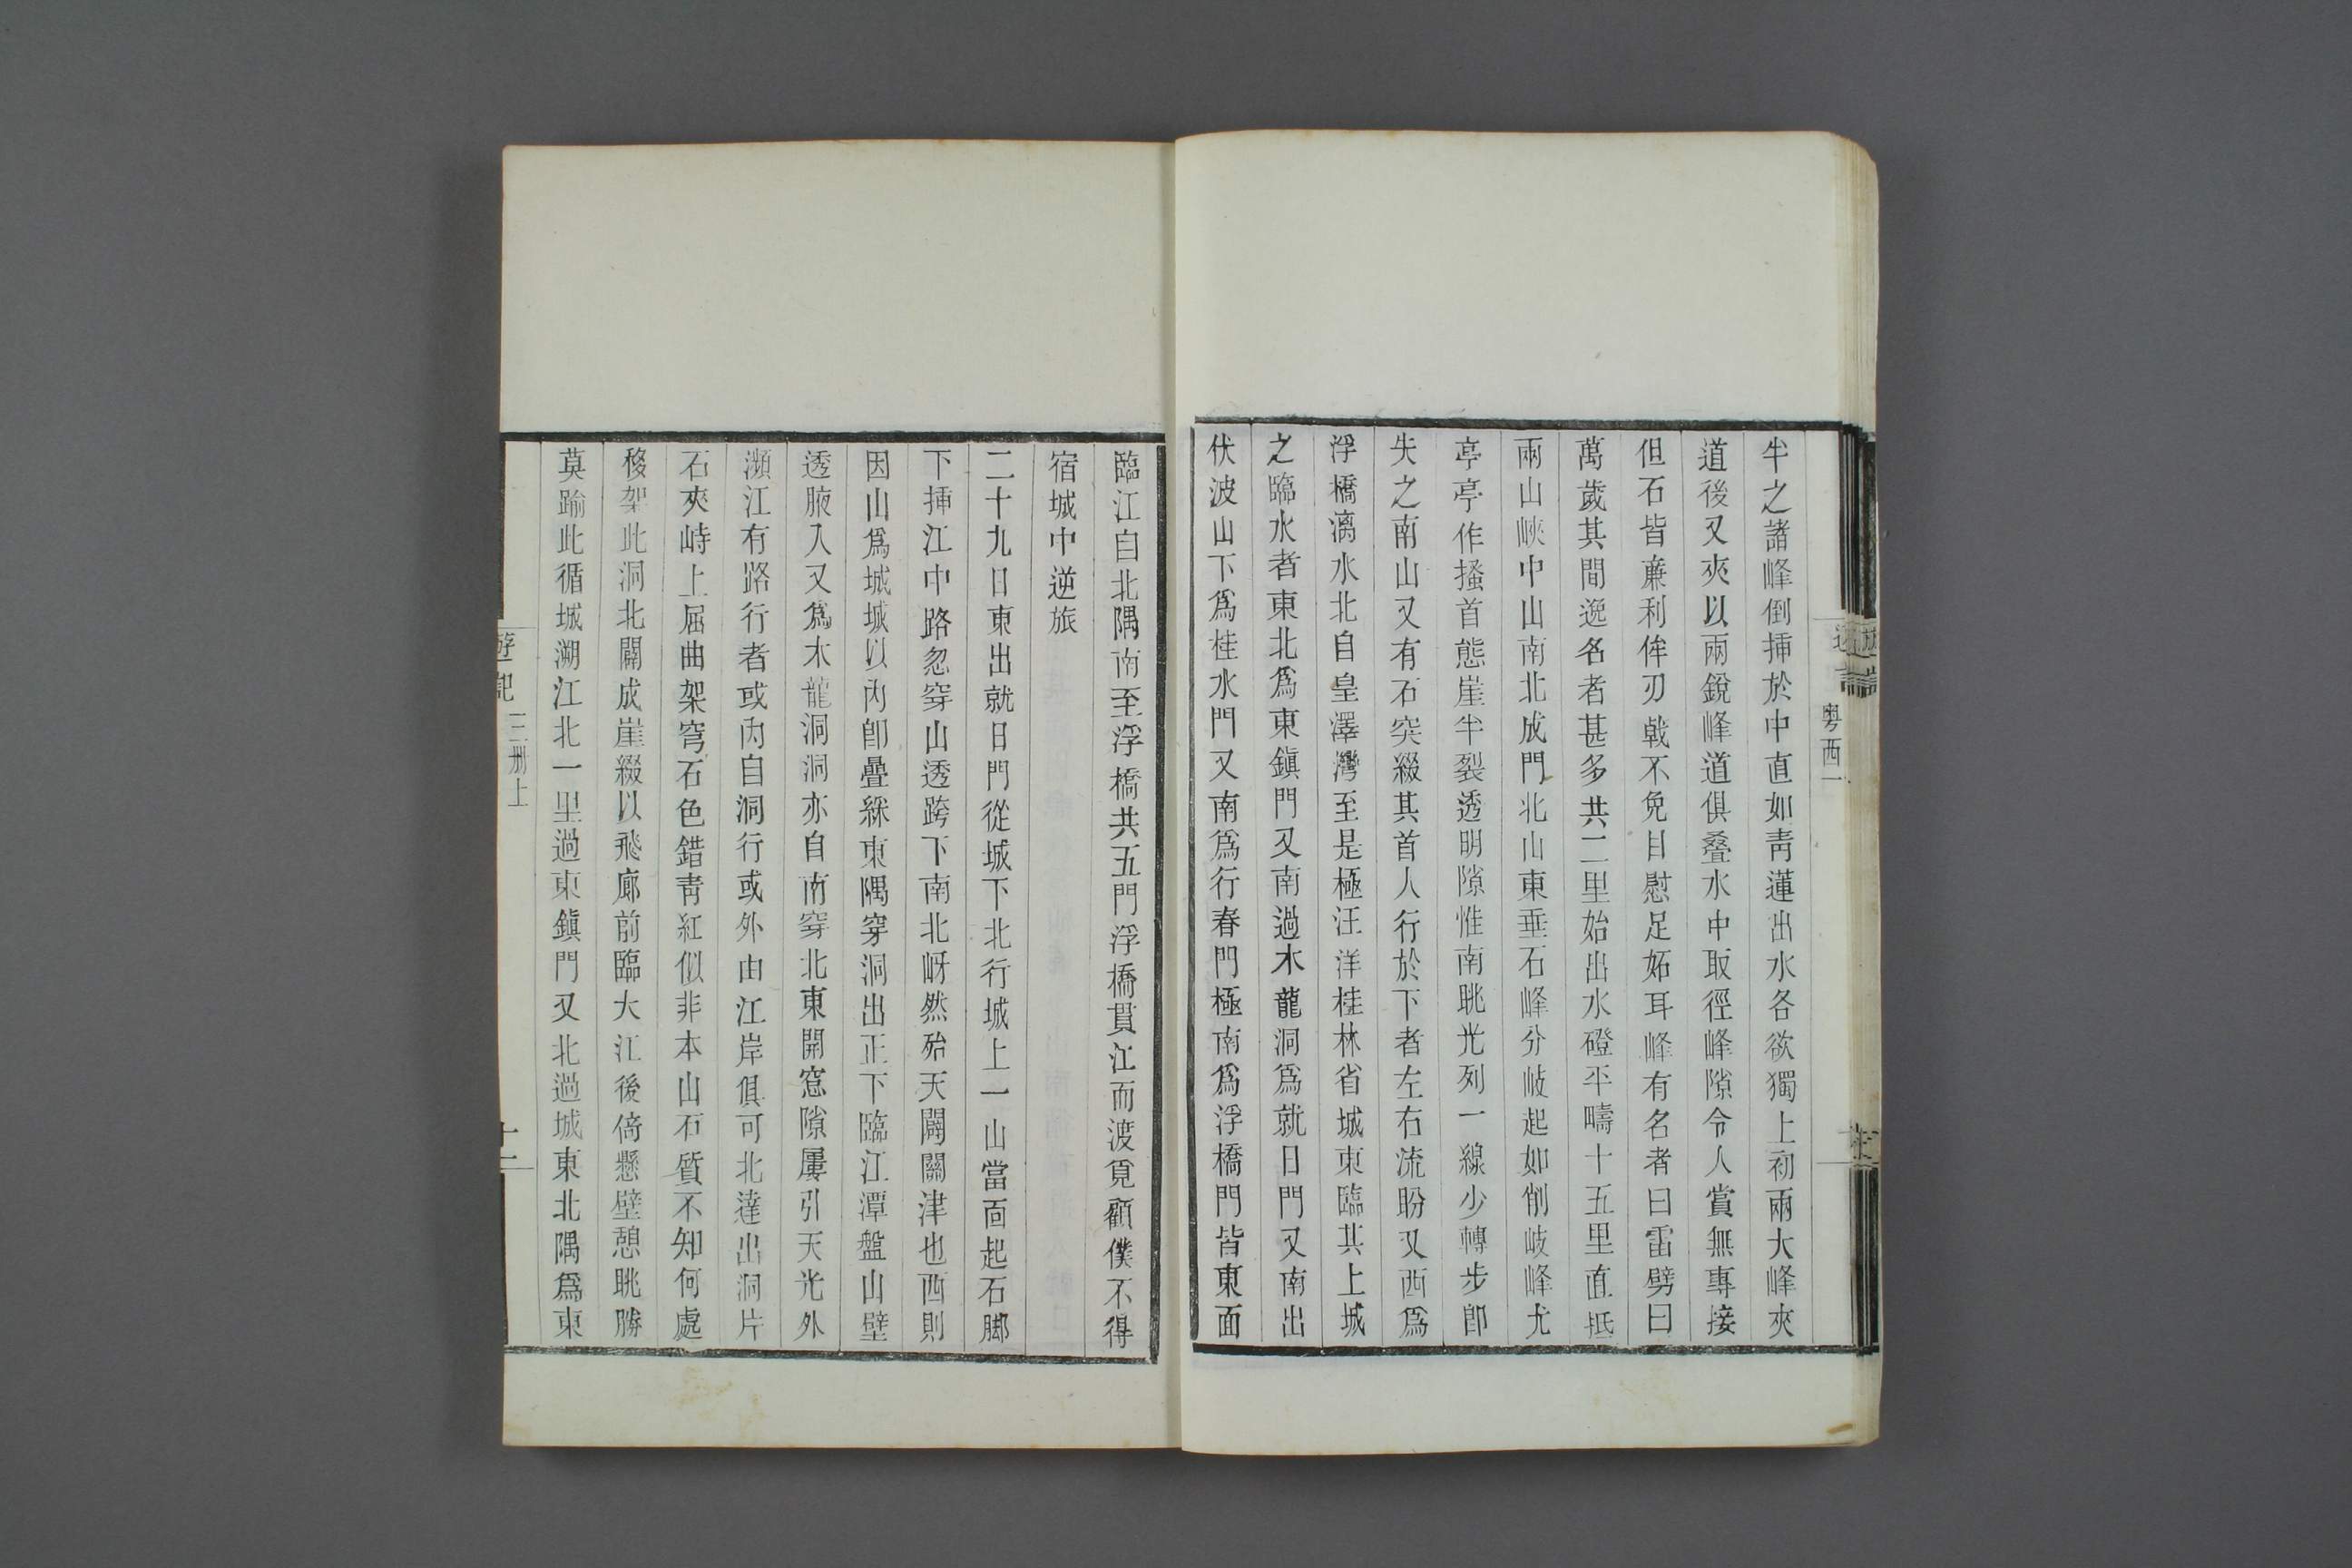 粤西一
半之諸峰倒揷於中直如靑蓮出水各欲獨上初兩大峰夾
道後又夾以兩銳峰道俱叠水中取徑峰隙令人賞無專接
但石皆亷利侔刃戟不免目慰足妬耳峰有名者曰雷劈曰
萬歲其間逸名者甚多共二里始出水磴平疇十五里直抵
兩山峽中山南北成門北山東垂石峰分岐起如削岐峰尤
亭亭作搔首態崖半裂透明隙惟南眺光列一線少轉步卽
失之南山又有石突綴其首人行於下者左右流盼又西爲
浮橋漓水北自皇澤灣至是極汪洋桂林省城東臨其上城
之臨水者東北爲東鎭門又南過木龍洞爲就日門又南出
伏波山下爲桂水門又南爲行春門極南爲浮橋門皆東面
臨江自北隅南至浮橋共五門浮橋貫江而渡覓顧僕不得
宿城中逆旅
二十九日東出就日門從城下北行城上一山當面起石脚
下揷江中路忽穿山透跨下南北岈然殆天闢關津也西則
因山爲城城以內卽疊綵東隅穿洞出正下臨江潭盤山壁
透腋入又爲木龍洞洞亦自南穿北東開窻隙屢引天光外
瀕江有路行者或內自洞行或外由江岸俱可北達出洞片
石夾峙上屈曲架穹石色錯靑紅似非本山石質不知何處
移架此洞北闢成崖綴以飛廊前臨大江後倚懸壁憩眺勝
莫踰此循城溯江北一里過東鎭門又北過城東北隅爲東
遊記
三册上
十一